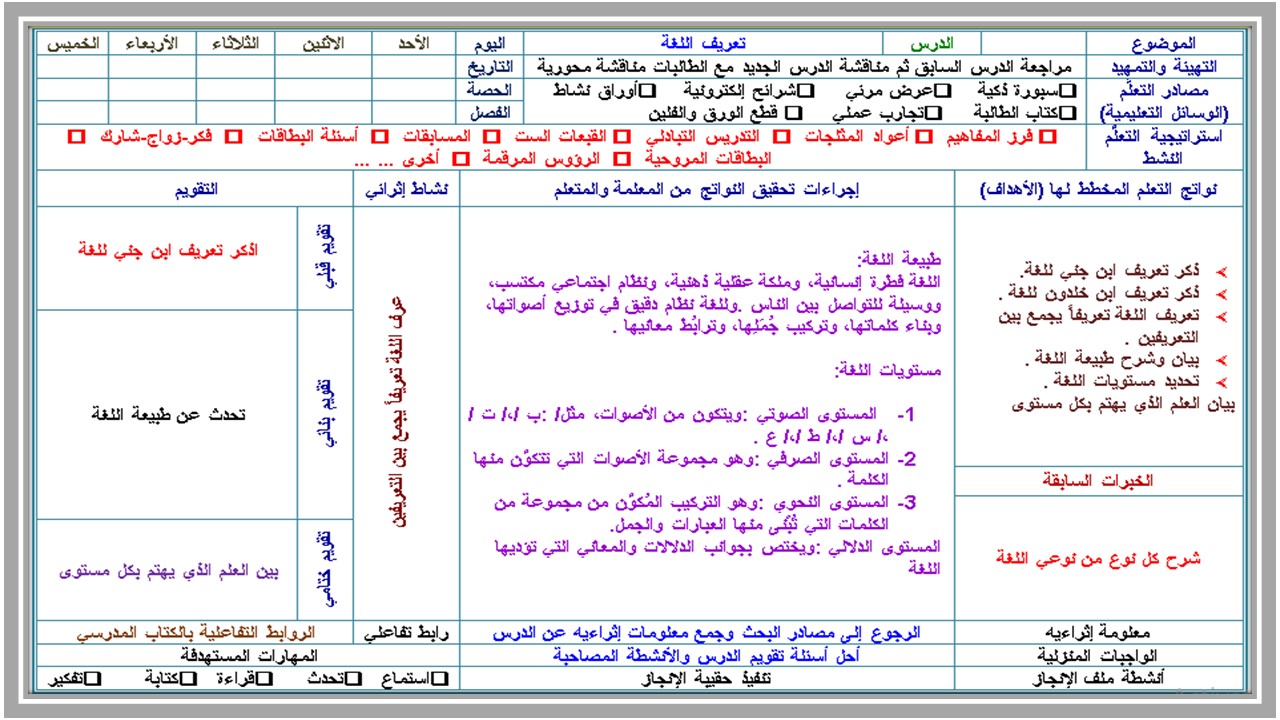 الموضوع الدرس تعريف اللغة اليوم الأحد الاثنين الثلاثاء الأربعاء الخميس
التهيئة والتمهيد مراجعة الدرس السابق ثم مناقشة الدرس الجديد مع الطالبات مناقشة محورية التاريخ
مصادر التعلم ☐سبورة ذكية ☐عرض مرئي ☐شرائح إلكترونية ☐أوراق نشاط الحصة
(الوسائل التعليمية) ☐كتاب الطالبة ☐تجارب عملي ☐ قطع الورق والفلين الفصل
استراتيجية التعلُّم ☐ فرز المفاهيم ☐ أعواد المثلجات ☐ التدريس التبادلي ☐ القبعات الست ☐ المسابقات ☐ أسئلة البطاقات ☐ فكر-زواج-شارك ☐
النشط البطاقات المروحية ☐ الرؤوس المرقمة ☐ أخرى ... ...
نواتج التعلم المخطط لها (الأهداف) إجراءات تحقيق النواتج من المعلمة والمتعلم نشاط إثرائي التقويم
ذكر تعريف ابن جني للغة.
ذكر تعريف ابن خلدون للغة .
تعريف اللغة تعريفاً يجمع بين
التعريفين .
بيان وشرح طبيعة اللغة .
تحديد مستويات اللغة .
بيان العلم الذي يهتم بكل مستوى
الخبرات السابقة
شرح كل نوع من نوعي اللغة
طبيعة اللغة:
اللغة فطرة إنسانية، وملكة عقلية ذهنية، ونظام اجتماعي مكتسب،
ووسيلة للتواصل بين الناس .وللغة نظام دقيق في توزيع أصواتها،
وبناء كلماتها، وتركيب جُمَلِها، وترابُط معانيها .
مستويات اللغة:
1- المستوى الصوتي :ويتكون من الأصوات، مثل/ :ب /،/ ت /
،/ س /،/ ط /،/ ع .
2- المستوى الصرفي :وهو مجموعة الأصوات التي تتكوَّن منها
الكلمة .
3- المستوى النحوي :وهو التركيب المُكوَّن من مجموعة من
الكلمات التي تُبْنَى منها العبارات والجمل.
المستوى الدلالي :ويختص بجوانب الدلالات والمعاني التي تؤديها
اللغة
عرف اللغة تعريفاً يجمع بين التعريفين
تقويم قبلي
اذكر تعريف ابن جني للغة
تقويم بنائي
تحدث عن طبيعة اللغة
تقويم ختامي
بين العلم الذي يهتم بكل مستوى
معلومة إثرائيه الرجوع إلى مصادر البحث وجمع معلومات إثراءيه عن الدرس رابط تفاعلي الروابط التفاعلية بالكتاب المدرسي
الواجبات المنزلية أحل أسئلة تقويم الدرس والأنشطة المصاحبة المهارات المستهدفة
أنشطة ملف الإنجاز تنفيذ حقيبة الإنجاز ☐استماع ☐تحدث ☐قراءة ☐كتابة ☐تفكير